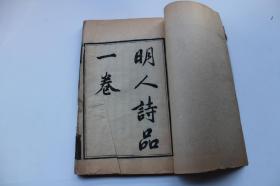 明人詩品
一卷